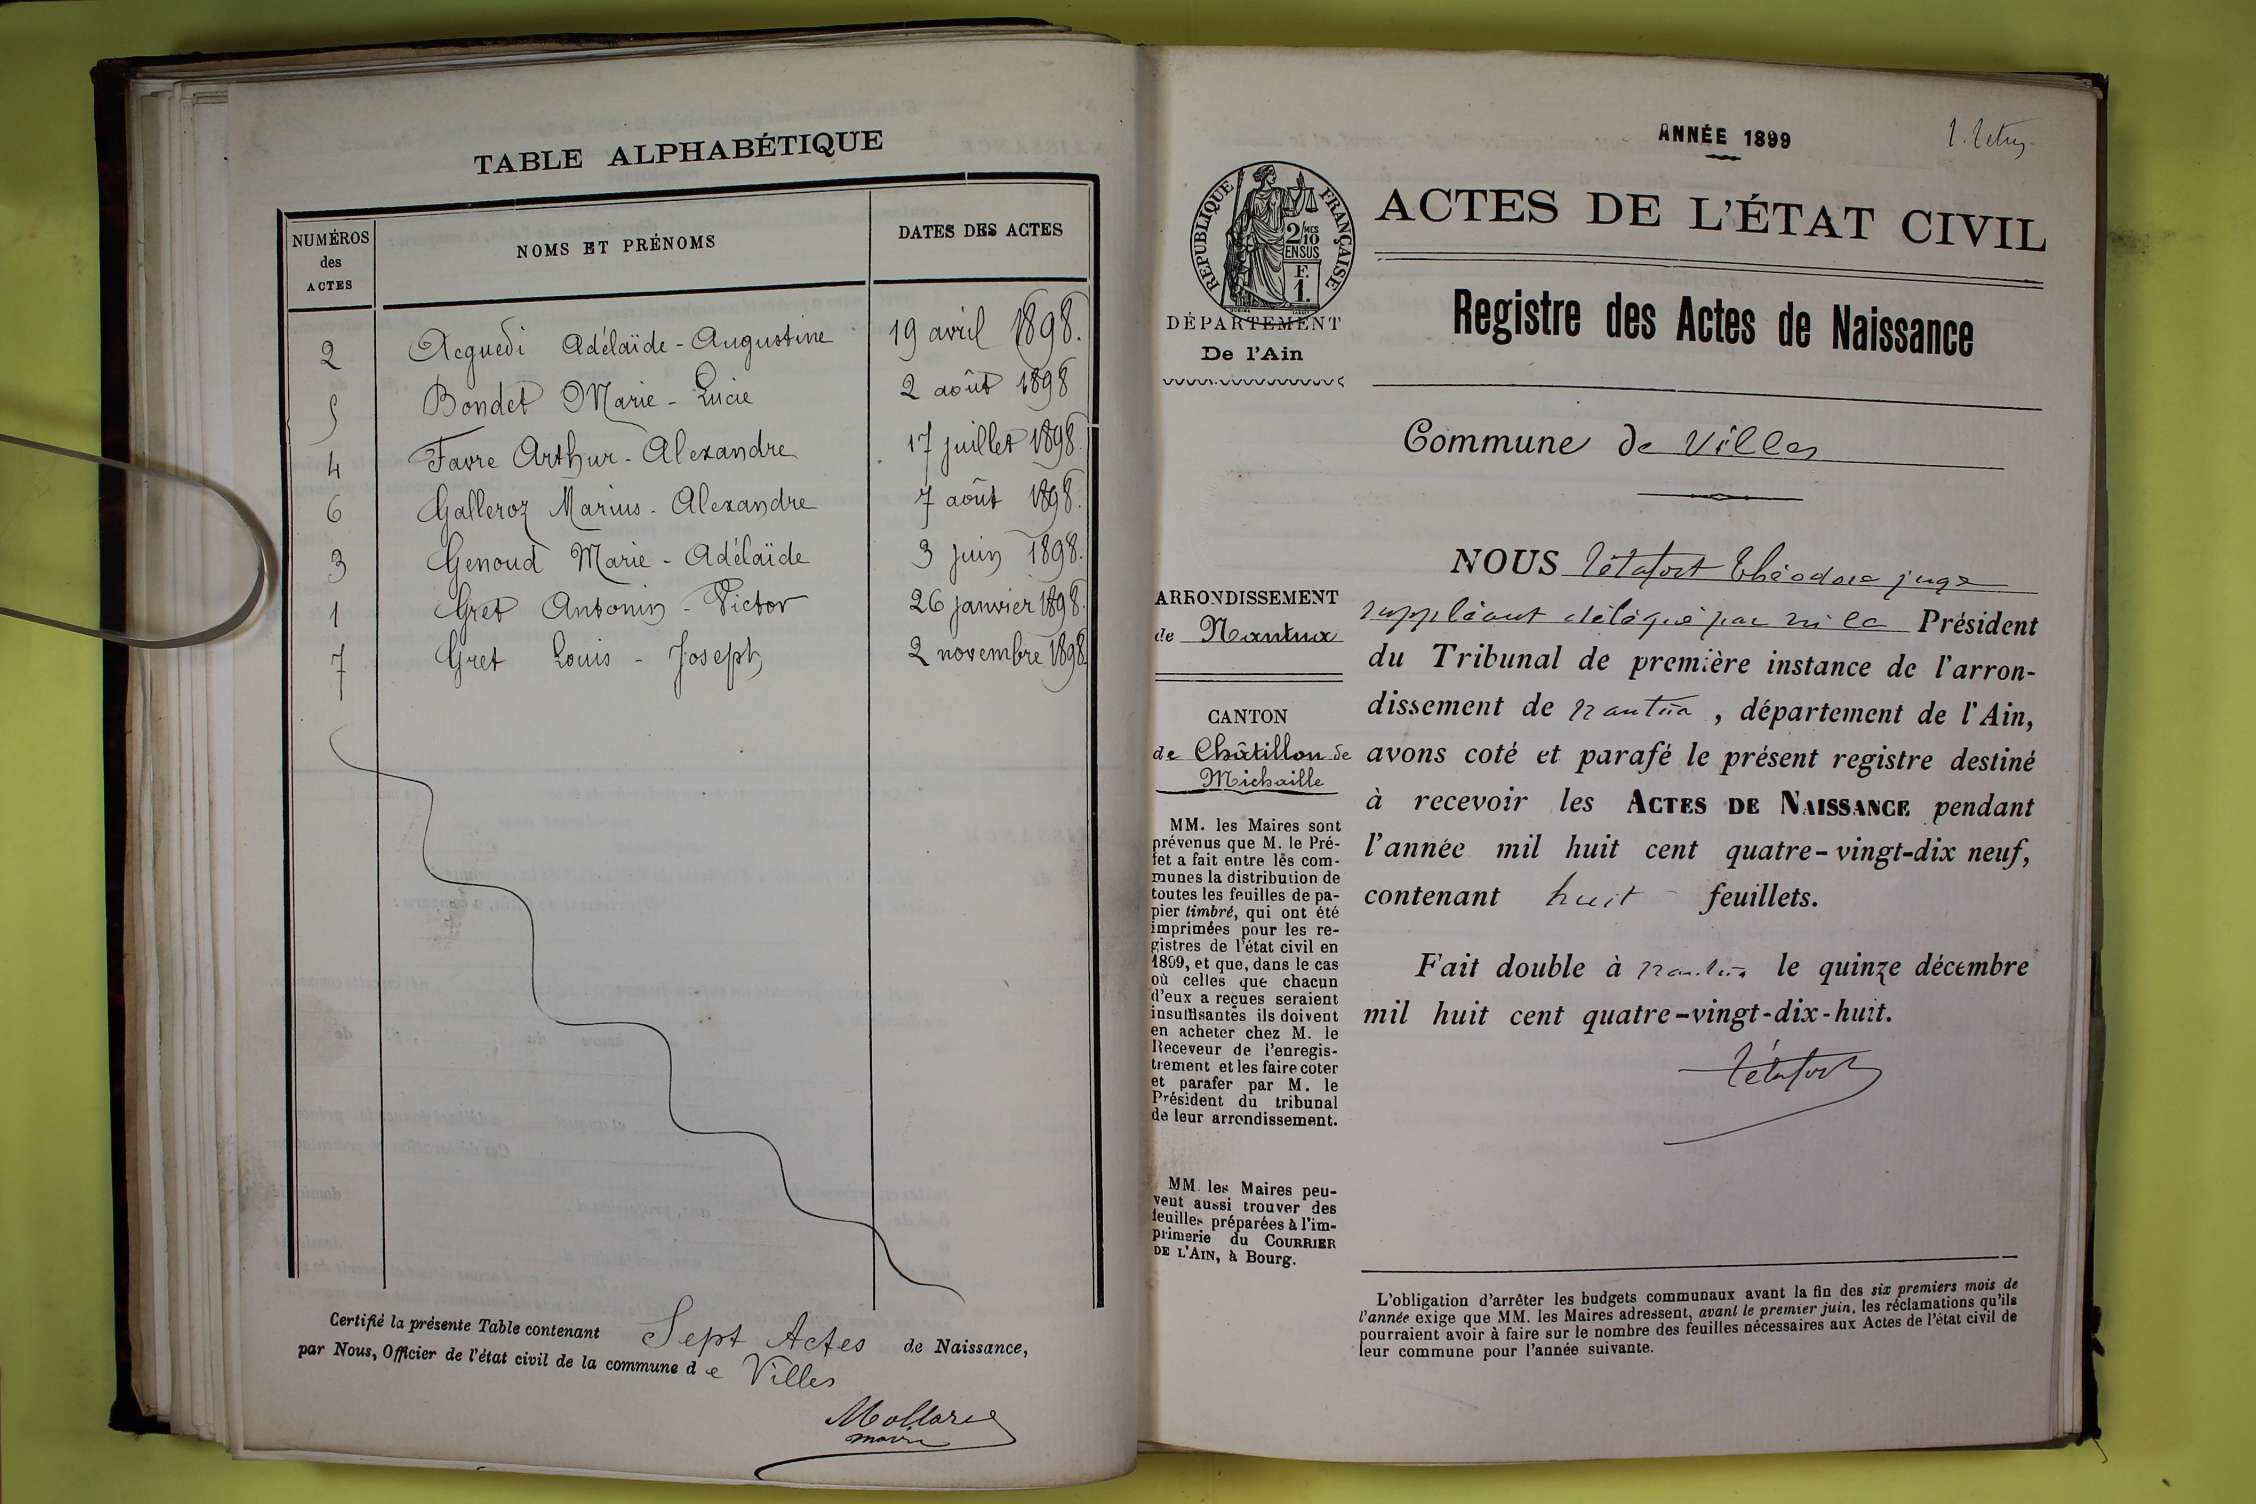 TABLE ALPHABÉTIQUE
NUMÉROS des ACTES
NOMS ET PRÉNOMS
DATES DES ACTES
2 Acquedi Adélaïde - Augustine 19 avril 1898.
5 Bondet Marie - Lucie 2 août 1898
4 Favre Arthur - Alexandre 17 juillet 1898.
6 Galleroz Marius - Alexandre 7 août 1898.
3 Genoud Marie - Adélaïde 3 juin 1898.
1 Gret Antonin - Victor 26 janvier 1898.
7 Gret Louis - Joseph 2 novembre 1898.
Certifié la présente Table contenant Sept Actes de Naissance,
par Nous, Officier de l'état civil de la commune de Villes
maire
ANNÉE 1899
RÉPUBLIQUE FRANÇAISE
2/10 MES
EN SUS
F.
1.
ACTES DE L'ÉTAT CIVIL
Registre des Actes de Naissance
DÉPARTEMENT
De l'Ain
Commune de Villes
ARRONDISSEMENT
de Nantua
CANTON
de Châtillon de
Michaille
MM. les Maires sont
prévenus que M. le Pré-
fet a fait entre les com-
munes la distribution de
toutes les feuilles de pa-
pier timbré, qui ont été
imprimées pour les re-
gistres de l'état civil en
1899, et que, dans le cas
où celles que chacun
d'eux a reçues seraient
insuffisantes ils doivent
en acheter chez M. le
Receveur de l'enregis-
trement et les faire coter
et parafer par M. le
Président du tribunal
de leur arrondissement.
MM. les Maires peu-
vent aussi trouver des
feuilles préparées à l'im-
primerie du COURRIER
DE L'AIN, à Bourg.
NOUS Tétafort Théodore juge
suppléant délégué par M le Président
du Tribunal de première instance de l'arron-
dissement de Nantua, département de l'Ain,
avons coté et parafé le présent registre destiné
à recevoir les ACTES DE NAISSANCE pendant
l'année mil huit cent quatre-vingt-dix neuf,
contenant huit feuillets.
Fait double à Nantua le quinze décembre
mil huit cent quatre-vingt-dix-huit.
Tétafort
L'obligation d'arrêter les budgets communaux avant la fin des six premiers mois de
l'année exige que MM. les Maires adressent, avant le premier juin, les réclamations qu'ils
pourraient avoir à faire sur le nombre des feuilles nécessaires aux Actes de l'état civil de
leur commune pour l'année suivante.